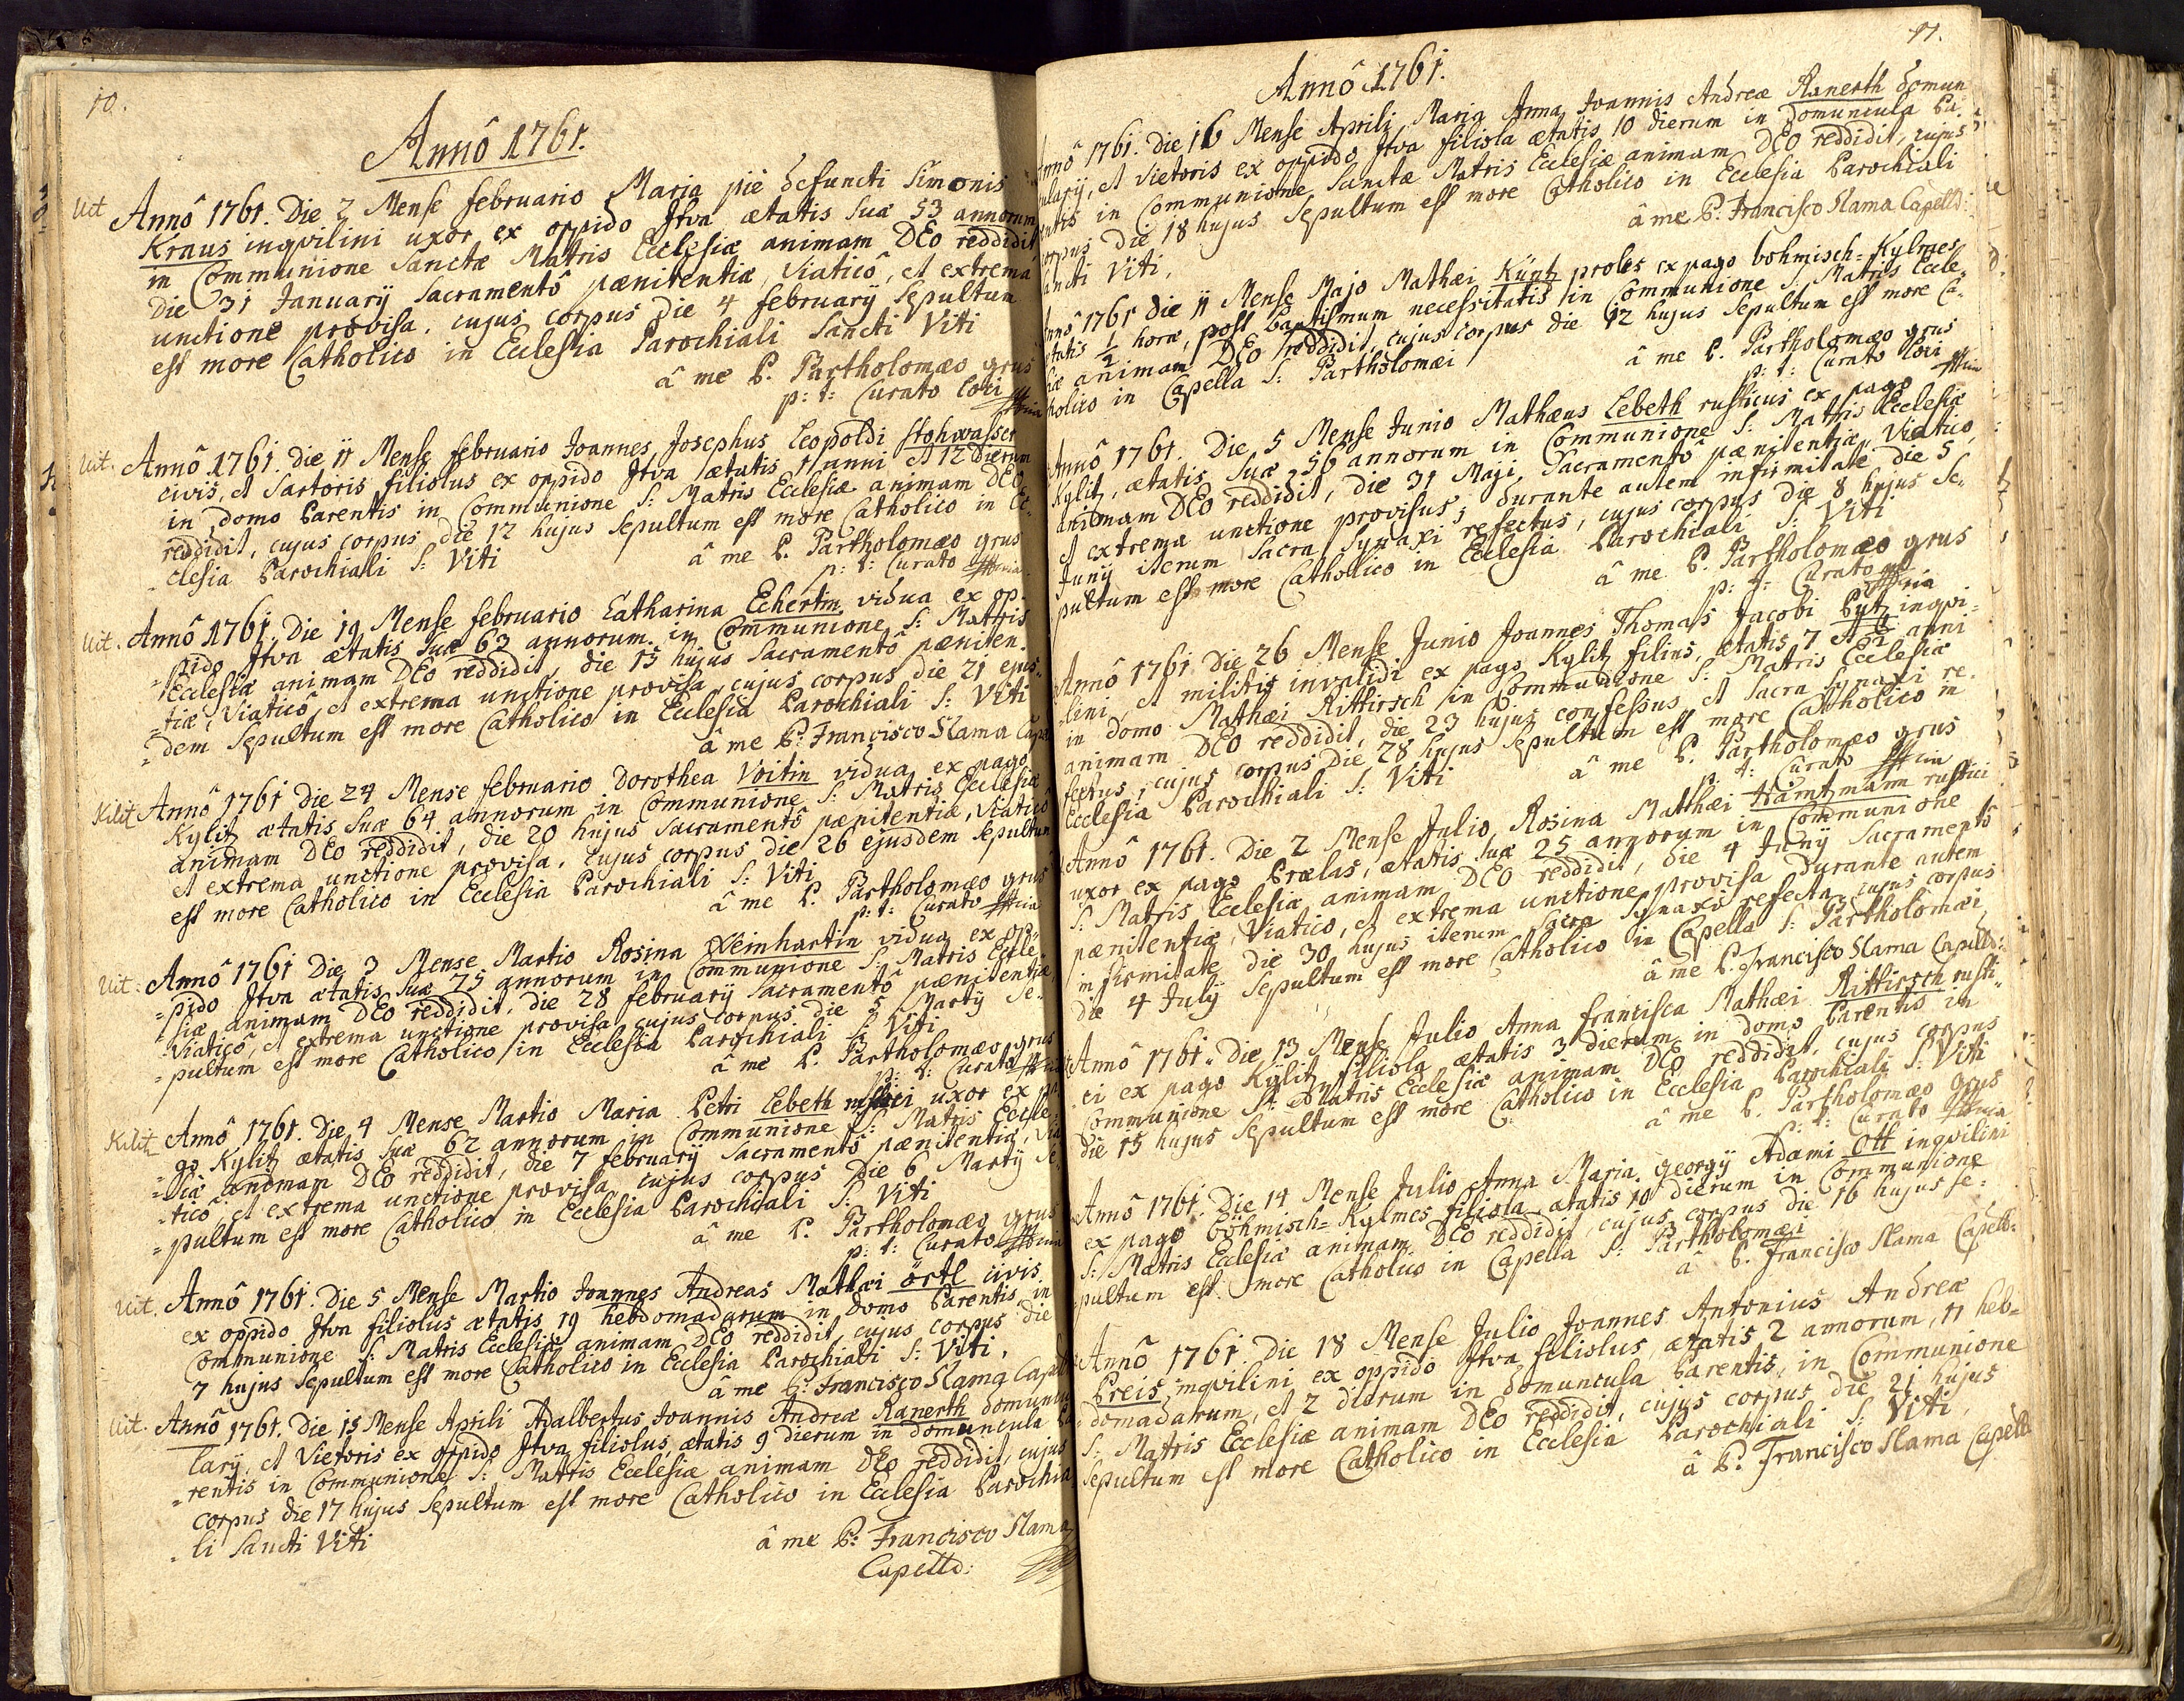 10.
Annô 1761.
Uit Annô 1761. Die 2 Mense februario Maria piè defuncti Simonis
Kraus inqvilini uxor ex oppido Itva ætatis suæ 53 annorum
in Communione Sanctæ Matris Ecclesiæ animam DEO reddidit,
die 31 January Sacramentô pænitentiæ, Viaticô, et extrema
unctione provisa. cujus corpus die 4 february Sepultum
est more Catholico in Ecclesia Parochiali Sancti Viti
â me P. Partholomæo grus
p: t: Curato Loci
Uit. Annô 1761. die 11 Mense februario Joannes Josephus Leopoldi Stohwasser
civis, et Sartoris filiolus ex oppido Itva ætatis 1 anni et 12 Dierum
in domo Parentis in Communione S: Matris Ecclesiæ animam DEO
reddidit, cujus corpus die 12 hujus Sepultum est more Catholico in Ec-
clesia Parochiali S: Viti
â me P. Partholomæo grus
p: t: Curato
Uit. Annô 1761. Die 19 Mense februario Catharina Echertin vidua ex op-
pido Itva ætatis suæ 63 annorum in Communione S: Matris
Ecclesiæ animam DEO reddidit, die 15 hujus Sacramentô pæniten-
tiæ, Viaticô, et extrema unctione provisa, cujus corpus die 21 ejus-
dem Sepultum est more Catholico in Ecclesia Parochiali S: Viti
â me P: Francisco Slama Cap
Kilit Annô 1761 die 24 Mense februario Dorothea Voitin vidua ex pago
Kylitz ætatis suæ 64 annorum in Communione S: Matris Ecclesiæ
animam DEO reddidit, die 20 hujus Sacramentô pænitentiæ, Viaticô
et extrema unctione provisa. cujus corpus die 26 ejusdem Sepultum
est more Catholico in Ecclesia Parochiali S: Viti
â me P. Partholomæo grus
p: t: Curato
Uit: Annô 1761 Die 3 Mense Martio Rosina Weinhartin vidua ex op-
pido Itva ætatis suæ 75 annorum in Communione S: Matris Eccle-
siæ animam DEO reddidit, die 28 february Sacramentô pænitentiæ,
Viaticô, et extrema unctione provisa cujus corpus die 5 Marty Se-
pultum est more Catholico in Ecclesia Parochiali S: Viti
â me P. Partholomæo grus
p: t: Curato
Kilitz Annô 1761. Die 4 Mense Martio Maria Petri Lebeth uxor ex pa
go Kylitz ætatis suæ 62 annorum in Communione S: Matris Eccle-
siæ animam DEO reddidit, die 7 february Sacramentô pænitentiæ, Via
ticô et extrema unctione provisa cujus corpus die 6 Marty Se-
pultum est more Catholico in Ecclesia Parochiali S: Viti
â me P. Partholomæo grus
p: t: Curato
Uit. Annô 1761. Die 5 Mense Martio Joannes Andreas Mathæi örtl civis
ex oppido Itva filiolus ætatis 19 hebdomadarum in domo Parentis in
Communione S: Matris Ecclesiæ animam DEO reddidit, cujus corpus die
7 hujus Sepultum est more Catholico in Ecclesia Parochiali S: Viti.
â me P: Francisco Slama Cap
Uit. Annô 1761. Die 15 Mense Aprili Adalbertus Joannis Andreæ Ranerth domuncu
lary, et Vietoris ex oppido Itva filiolus, ætatis 9 dierum in domuncula Pa
rentis in Communione S: Matris Ecclesiæ animam DEO reddidit, cujus
corpus die 17 hujus Sepultum est more Catholico in Ecclesia Parochia
li Sancti Viti
â me P: Francisco Slama
Capelld:
11.
Annô 1761.
Annô 1761. Die 16 Mense Aprili Maria Anna Joannis Andreæ Ranerth domun
culary, et Vietoris ex oppido Itva filiola ætatis 10 dierum in Domuncula Pa-
rentis in Communione Sanctæ Matris Ecclesiæ animam DEO reddidit, cujus
corpus Die 18 hujus Sepultum est more Catholico in Ecclesia Parochiali
Sancti Viti.
â me P. Francisco Slama Capelld:
Annô 1761 die 11 Mense Majo Mathæi Küntz proles ex pago bohmisch=Kylmes
ætatis 1/2 horæ, post Baptismum necessitatis in Communione S. Matris Eccle-
siæ animam DEO reddidit, cujus corpus die 12 hujus Sepultum est more Ca-
tholico in Capella S: Partholomæi
â me P. Partholomæo grus
p: t: Curato Loci
Annô 1761. Die 5 Mense Junio Mathæus Lebeth rusticus ex pago
Kylitz, ætatis suæ 56 annorum in Communione S: Matris Ecclesiæ
animam DEO reddidit, die 31 Maji Sacramentô pænitentiæ, Viatico,
et extrema unctione provisus; durante autem infirmitate die 5
Juny iterum Sacra Synaxi refectus, cujus corpus die 8 hujus Se-
pultum est more Catholico in Ecclesia Parochiali S: Viti
â me P. Partholomæo grus
p: t: Curato
Annô 1761 Die 26 Mense Junio Joannes Thomas Jacobi Putz inqvi-
lini, et militis invalidi ex pago Kylitz filius, ætatis 7 et 1/2 anni
in domo Mathæi Rittirsch in Communione S: Matris Ecclesiæ
animam DEO reddidit, die 23 hujus confessus, et Sacra Synaxi re-
fectus, cujus corpus die 28 hujus Sepultum est more Catholico in
Ecclesia Parochiali S: Viti
â me P. Partholomæo grus
p: t: Curato
Annô 1761. Die 2 Mense Julio Rosina Matthæi Hamtzmann rustici
uxor ex pago Prælas, ætatis suæ 25 annorum in Communione
S: Matris Ecclesiæ animam DEO reddidit, die 4 Juny Sacramentô
pænitentiæ, Viatico, et extrema unctione provisa durante autem
infirmitate die 30 hujus iterum Sacra Synaxi refecta, cujus corpus
die 4 July Sepultum est more Catholico in Capella S: Partholomæi
â me P. Francisco Slama Capelld:
Annô 1761. Die 13 Mense Julio Anna francisca Mathæi Rittirsch rusti-
ci ex pago Kylitz filiola ætatis 3 dierum in domo Parentis in
Communione S: Matris Ecclesiæ animam DEO reddidit, cujus corpus
die 15 hujus Sepultum est more Catholico in Ecclesia Parochiali S: Viti
â me P. Partholomæo grus
p: t: Curato
Annô 1761. Die 14 Mense Julio Anna Maria georgy Adami Ott inqvilini
ex pago böhmisch=Kylmes filiola ætatis 10 dierum in Communione
S: Matris Ecclesiæ animam DEO reddidit, cujus corpus die 16 hujus se-
pultum est more Catholico in Capella S: Partholomæi
â P. Francisco Slama Capelld:
Annô 1761. Die 18 Mense Julio Joannes Antonius Andreæ
Preis inqvilini ex oppido Itva filiolus, ætatis 2 annorum, 11 heb-
domadarum, et 2 dierum in domuncula Parentis, in Communione
S: Matris Ecclesiæ animam DEO reddidit, cujus corpus die 21 hujus
Sepultum est more Catholico in Ecclesia Parochiali S: Viti
â P: Francisco Slama Capelld